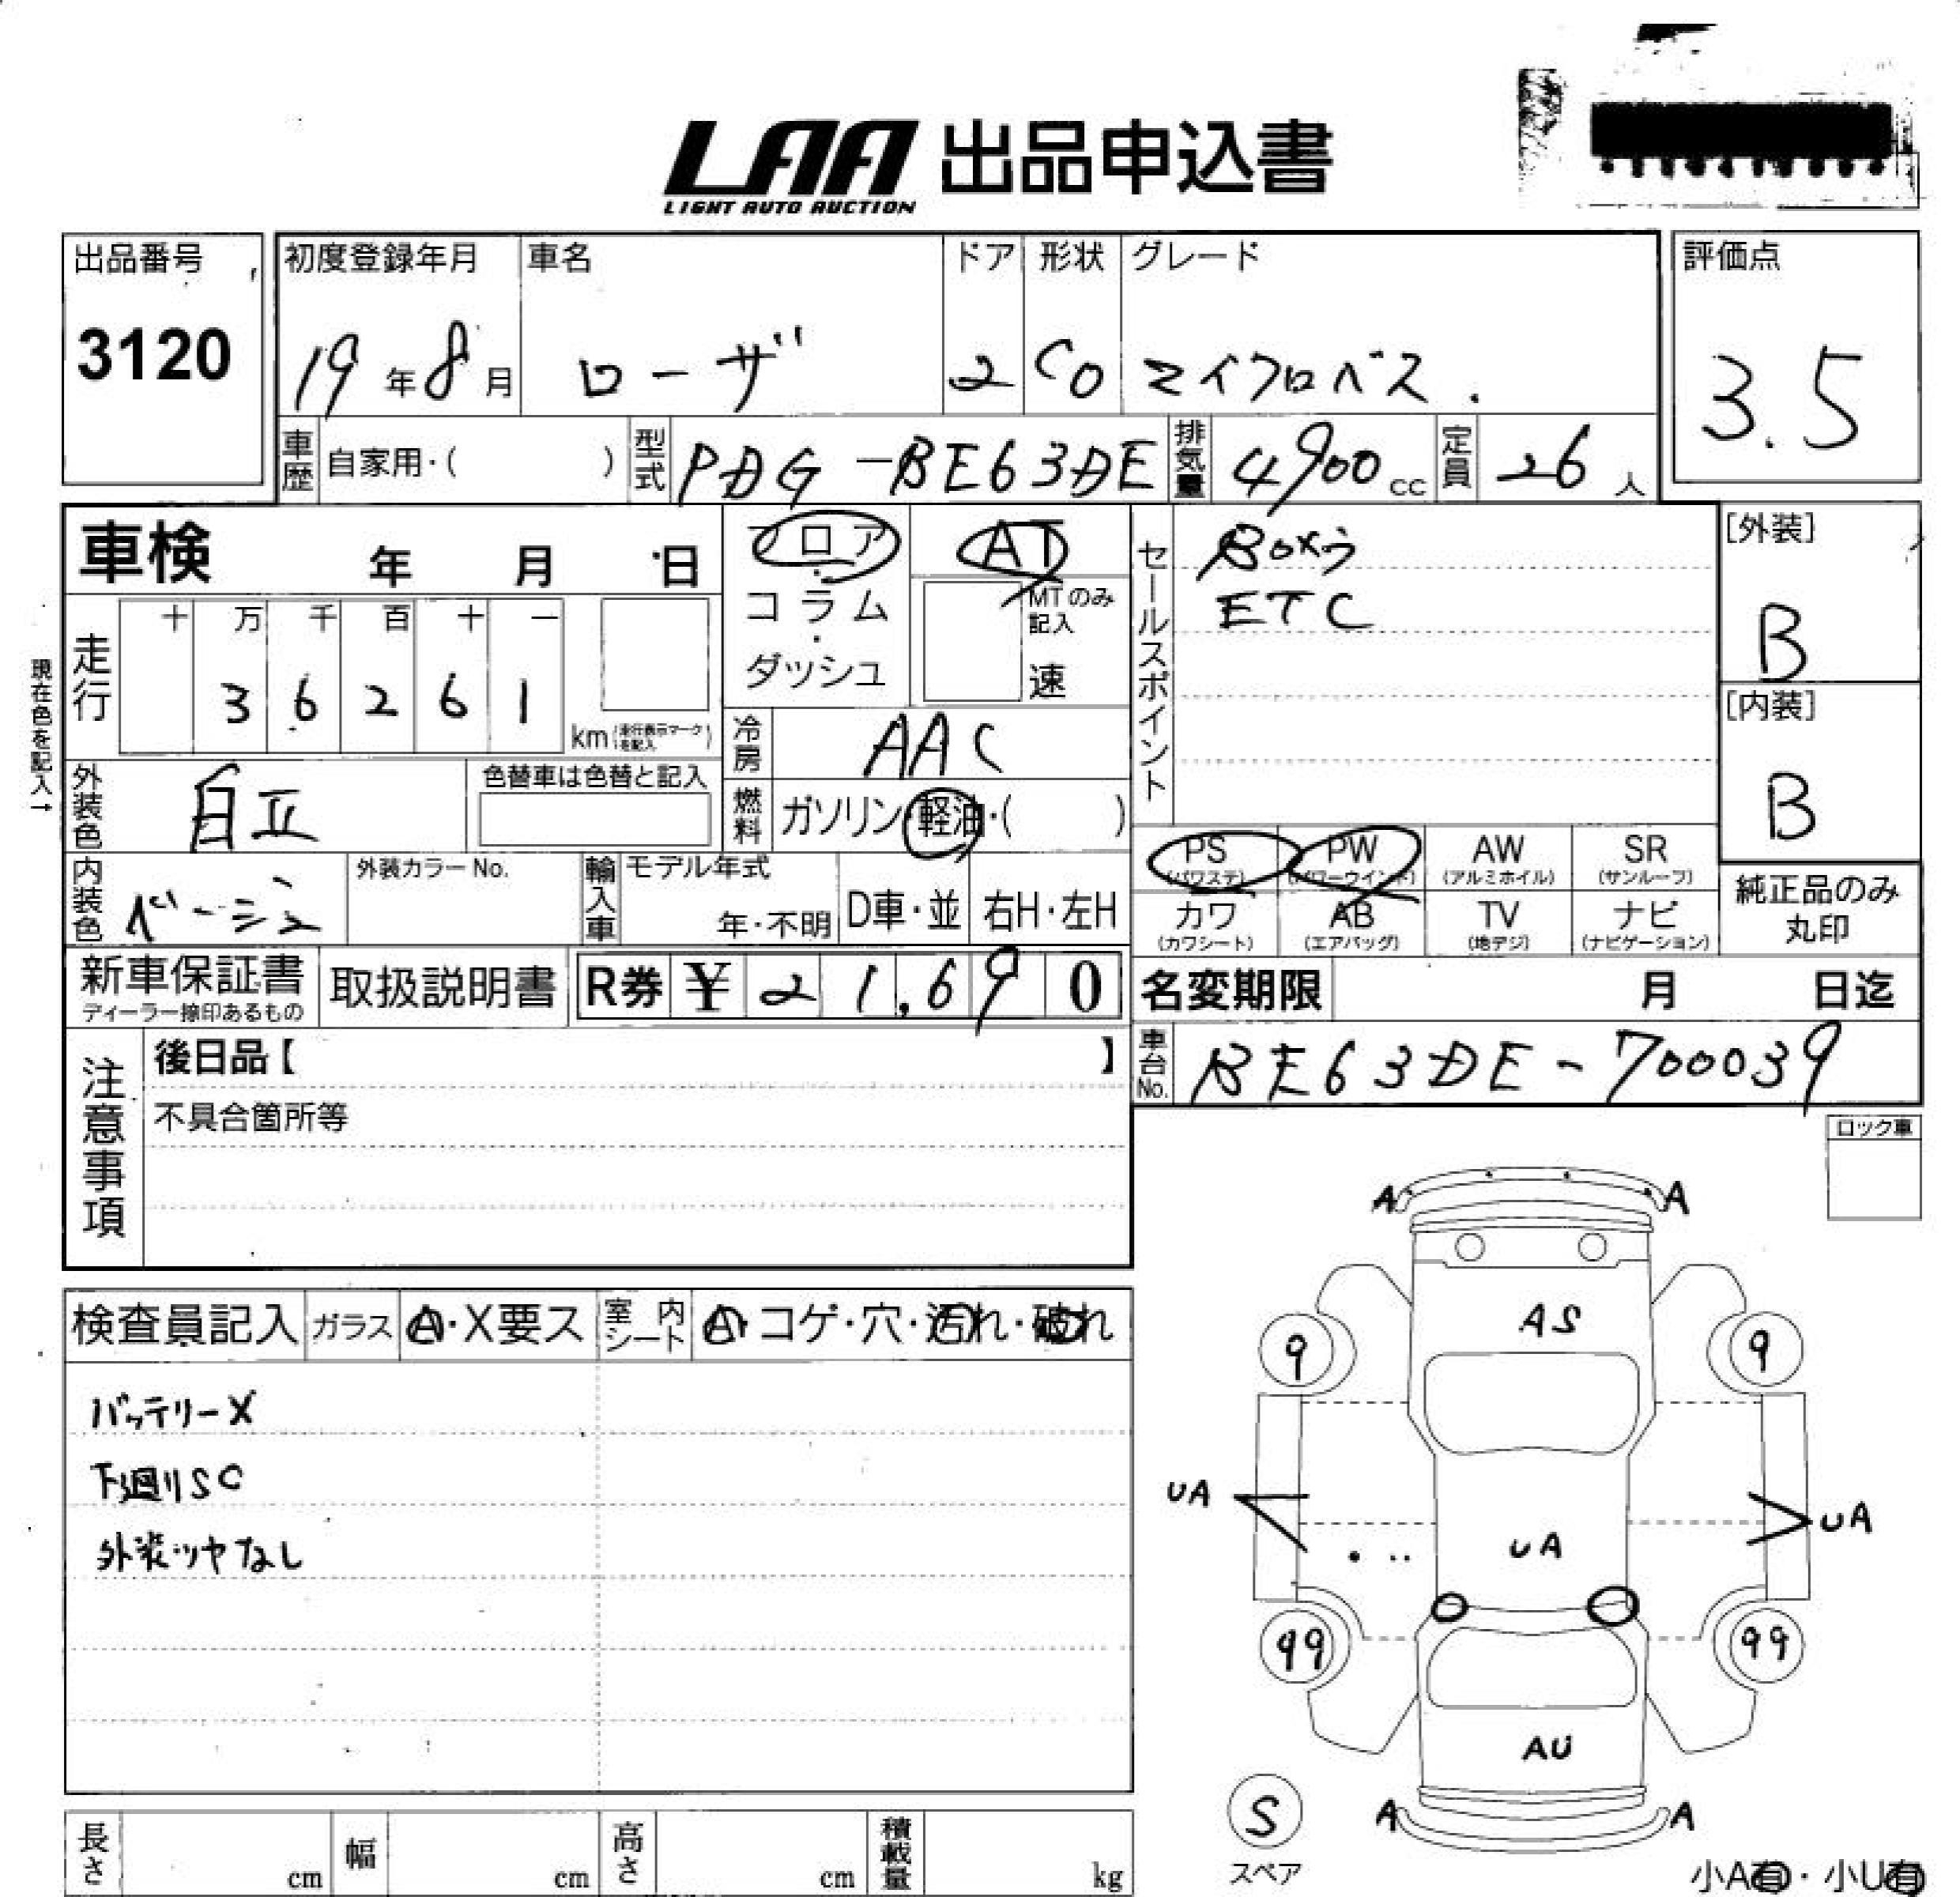 LAA 出品申込書
LIGHT AUTO AUCTION
出品番号
3120
初度登録年月
19年8月
車名
ローザ
ドア
2
形状
CO
グレード
マイクロバス.
評価点
3.5
車歴
自家用・( )
型式
PDG-BE63DE
排気量
4900cc
定員
26人
車検 年 月 日
フロア
・
コラム
・
ダッシュ
AT
MTのみ
記入
速
セールスポイント
Boxう
ETC
[外装]
B
[内装]
B
現在色を記入→
走行
十 万 千 百 十 一
3 6 2 6 1
km(走行表示マークを記入)
冷房
AAC
外装色
色替車は色替と記入
燃料
ガソリン・軽油・( )
PS
(パワステ)
PW
(パワーウインド)
AW
(アルミホイル)
SR
(サンルーフ)
カワ
(カワシート)
AB
(エアバッグ)
TV
(地デジ)
ナビ
(ナビゲーション)
純正品のみ
丸印
内装色
ベージュ
外装カラーNo.
輸入車
モデル年式
年・不明
D車・並
右H・左H
新車保証書
ディーラー捺印あるもの
取扱説明書
R券 ¥ 21,690
名変期限 月 日迄
車台No.
BE63DE-700039
注意事項
後日品【 】
不具合箇所等
ロック車
検査員記入
ガラス
A・X要ス
室内シート
A・コゲ・穴・汚れ・破れ
バッテリーX
下廻りSC
外装ツヤなし
A A
AS
9 9
UA UA
UA
99 99
AU
A A
S
スペア
長さ cm
幅 cm
高さ cm
積載量 kg
小A有・小U有